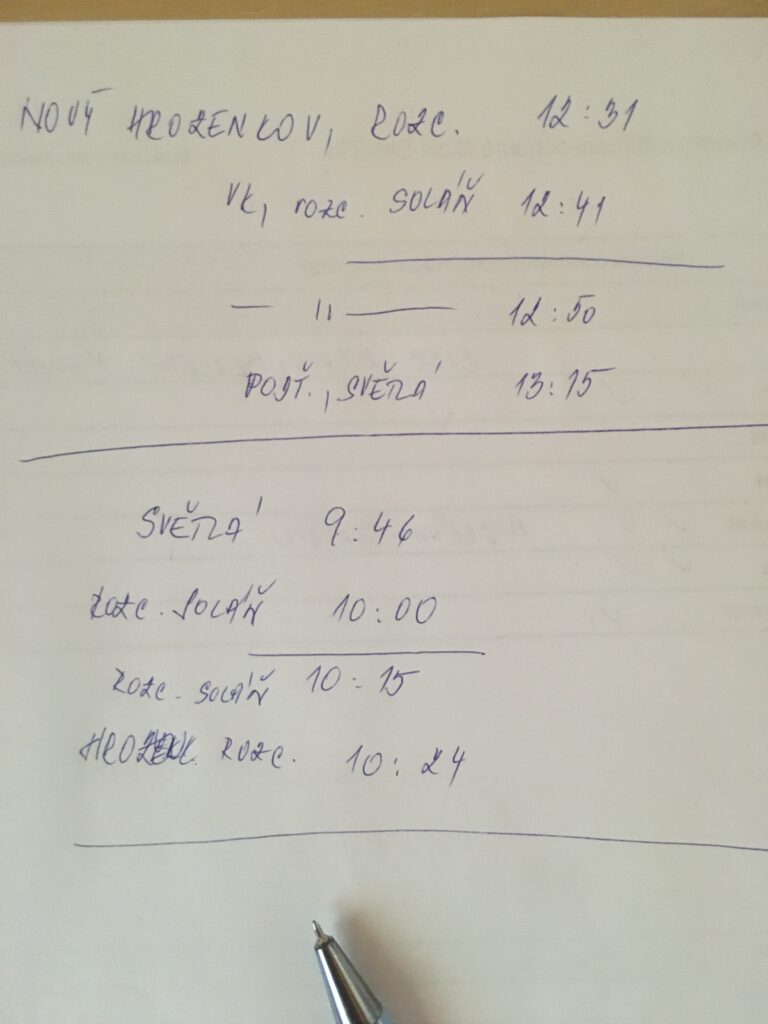 NOVÝ HROZENKOV, ROZC. 12:31
VK, ROZC. SOLÁŇ 12:41
— 11 — 12:50
POŠŤ., SVĚTLÁ 13:15
SVĚTLÁ 9:46
ROZC. SOLÁŇ 10:00
ROZC. SOLÁŇ 10:15
ROZC. 10:24